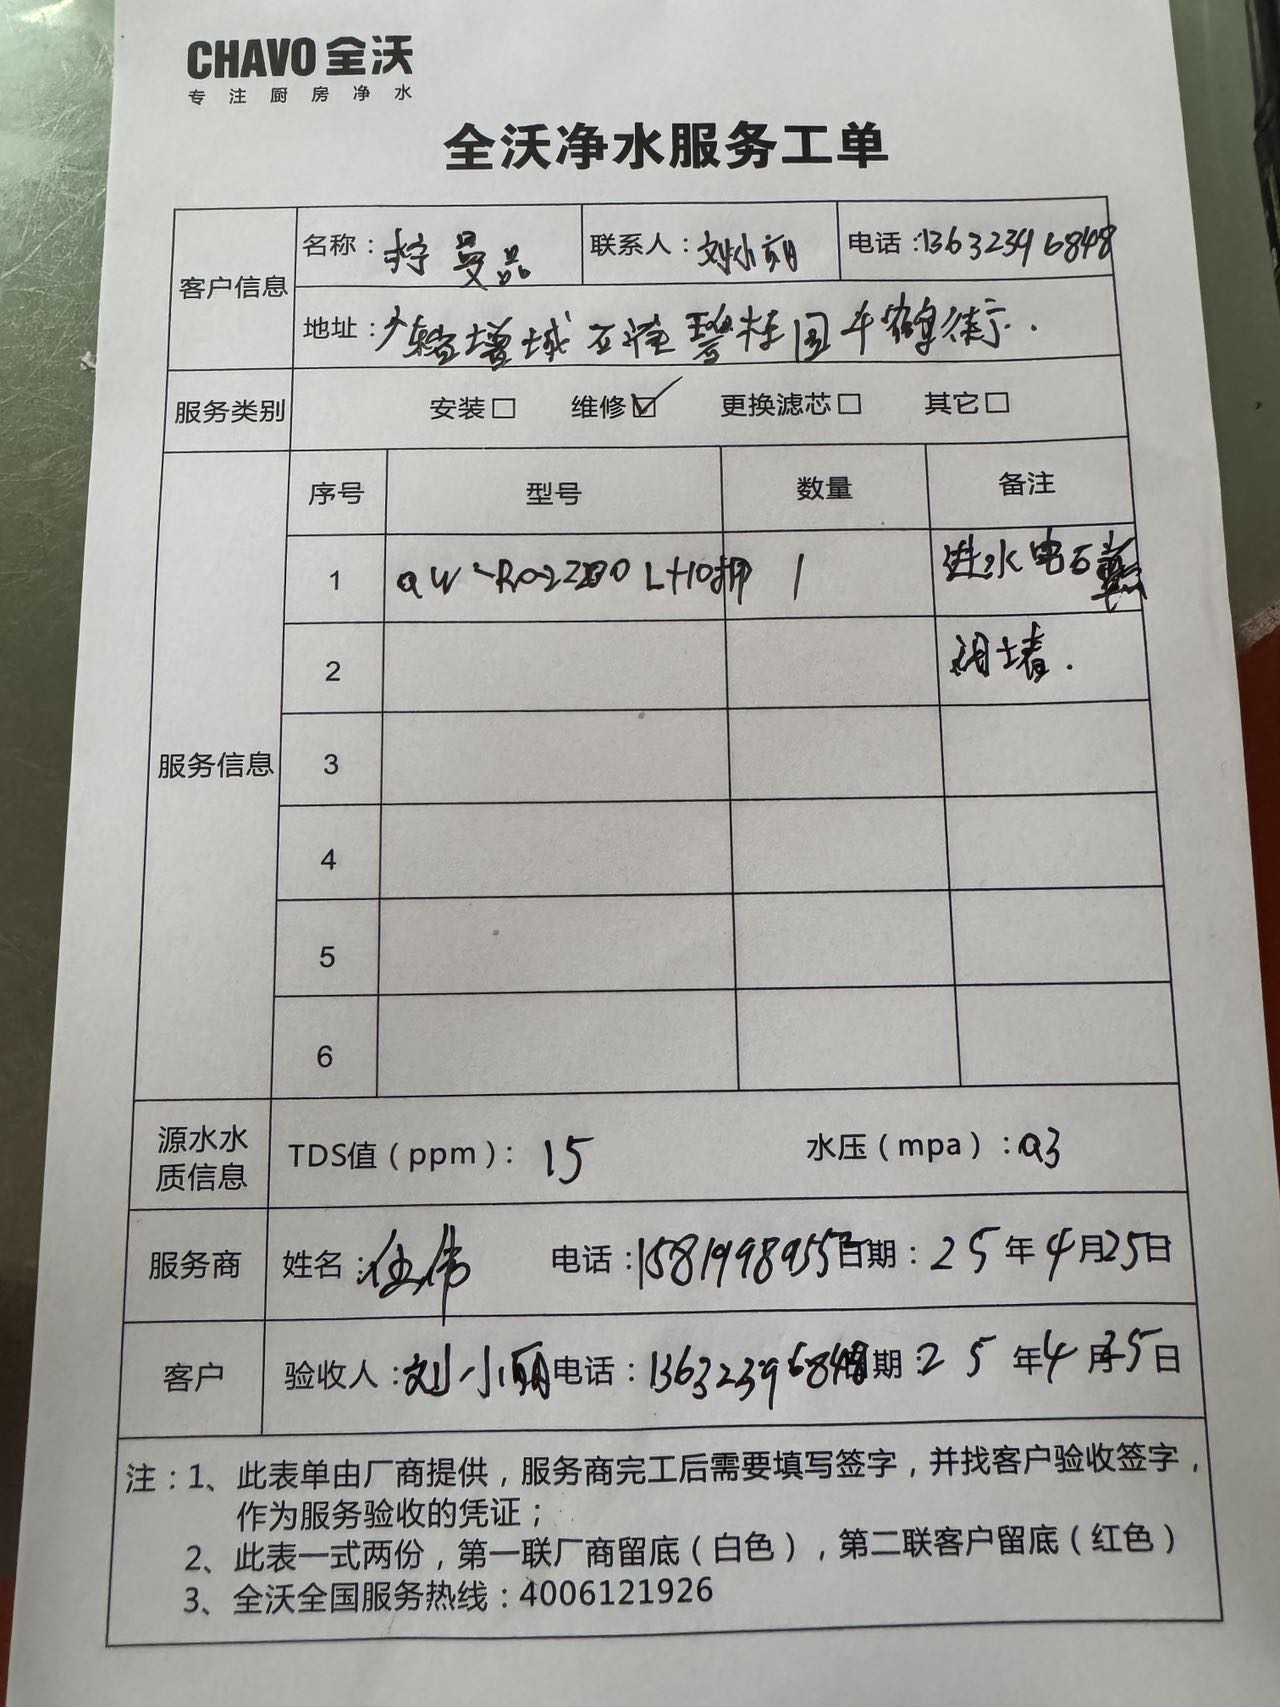 CHAVO 全沃
专注厨房净水
全沃净水服务工单
客户信息
名称：柠曼品 联系人：刘小丽 电话：13632396848
地址：广州增城 碧桂园 街
服务类别 安装□ 维修☑ 更换滤芯□ 其它□
服务信息
序号 型号 数量 备注
1 QW-RO2200L+10 1 进水电
2 阀堵.
3
4
5
6
源水水质信息 TDS值（ppm）：15 水压（mpa）：0.3
服务商 姓名：任伟 电话：1581998955 日期：25年4月25日
客户 验收人：刘小丽 电话：13632396848 日期：25年4月25日
注：1、此表单由厂商提供，服务商完工后需要填写签字，并找客户验收签字，
作为服务验收的凭证；
2、此表一式两份，第一联厂商留底（白色），第二联客户留底（红色）
3、全沃全国服务热线：4006121926